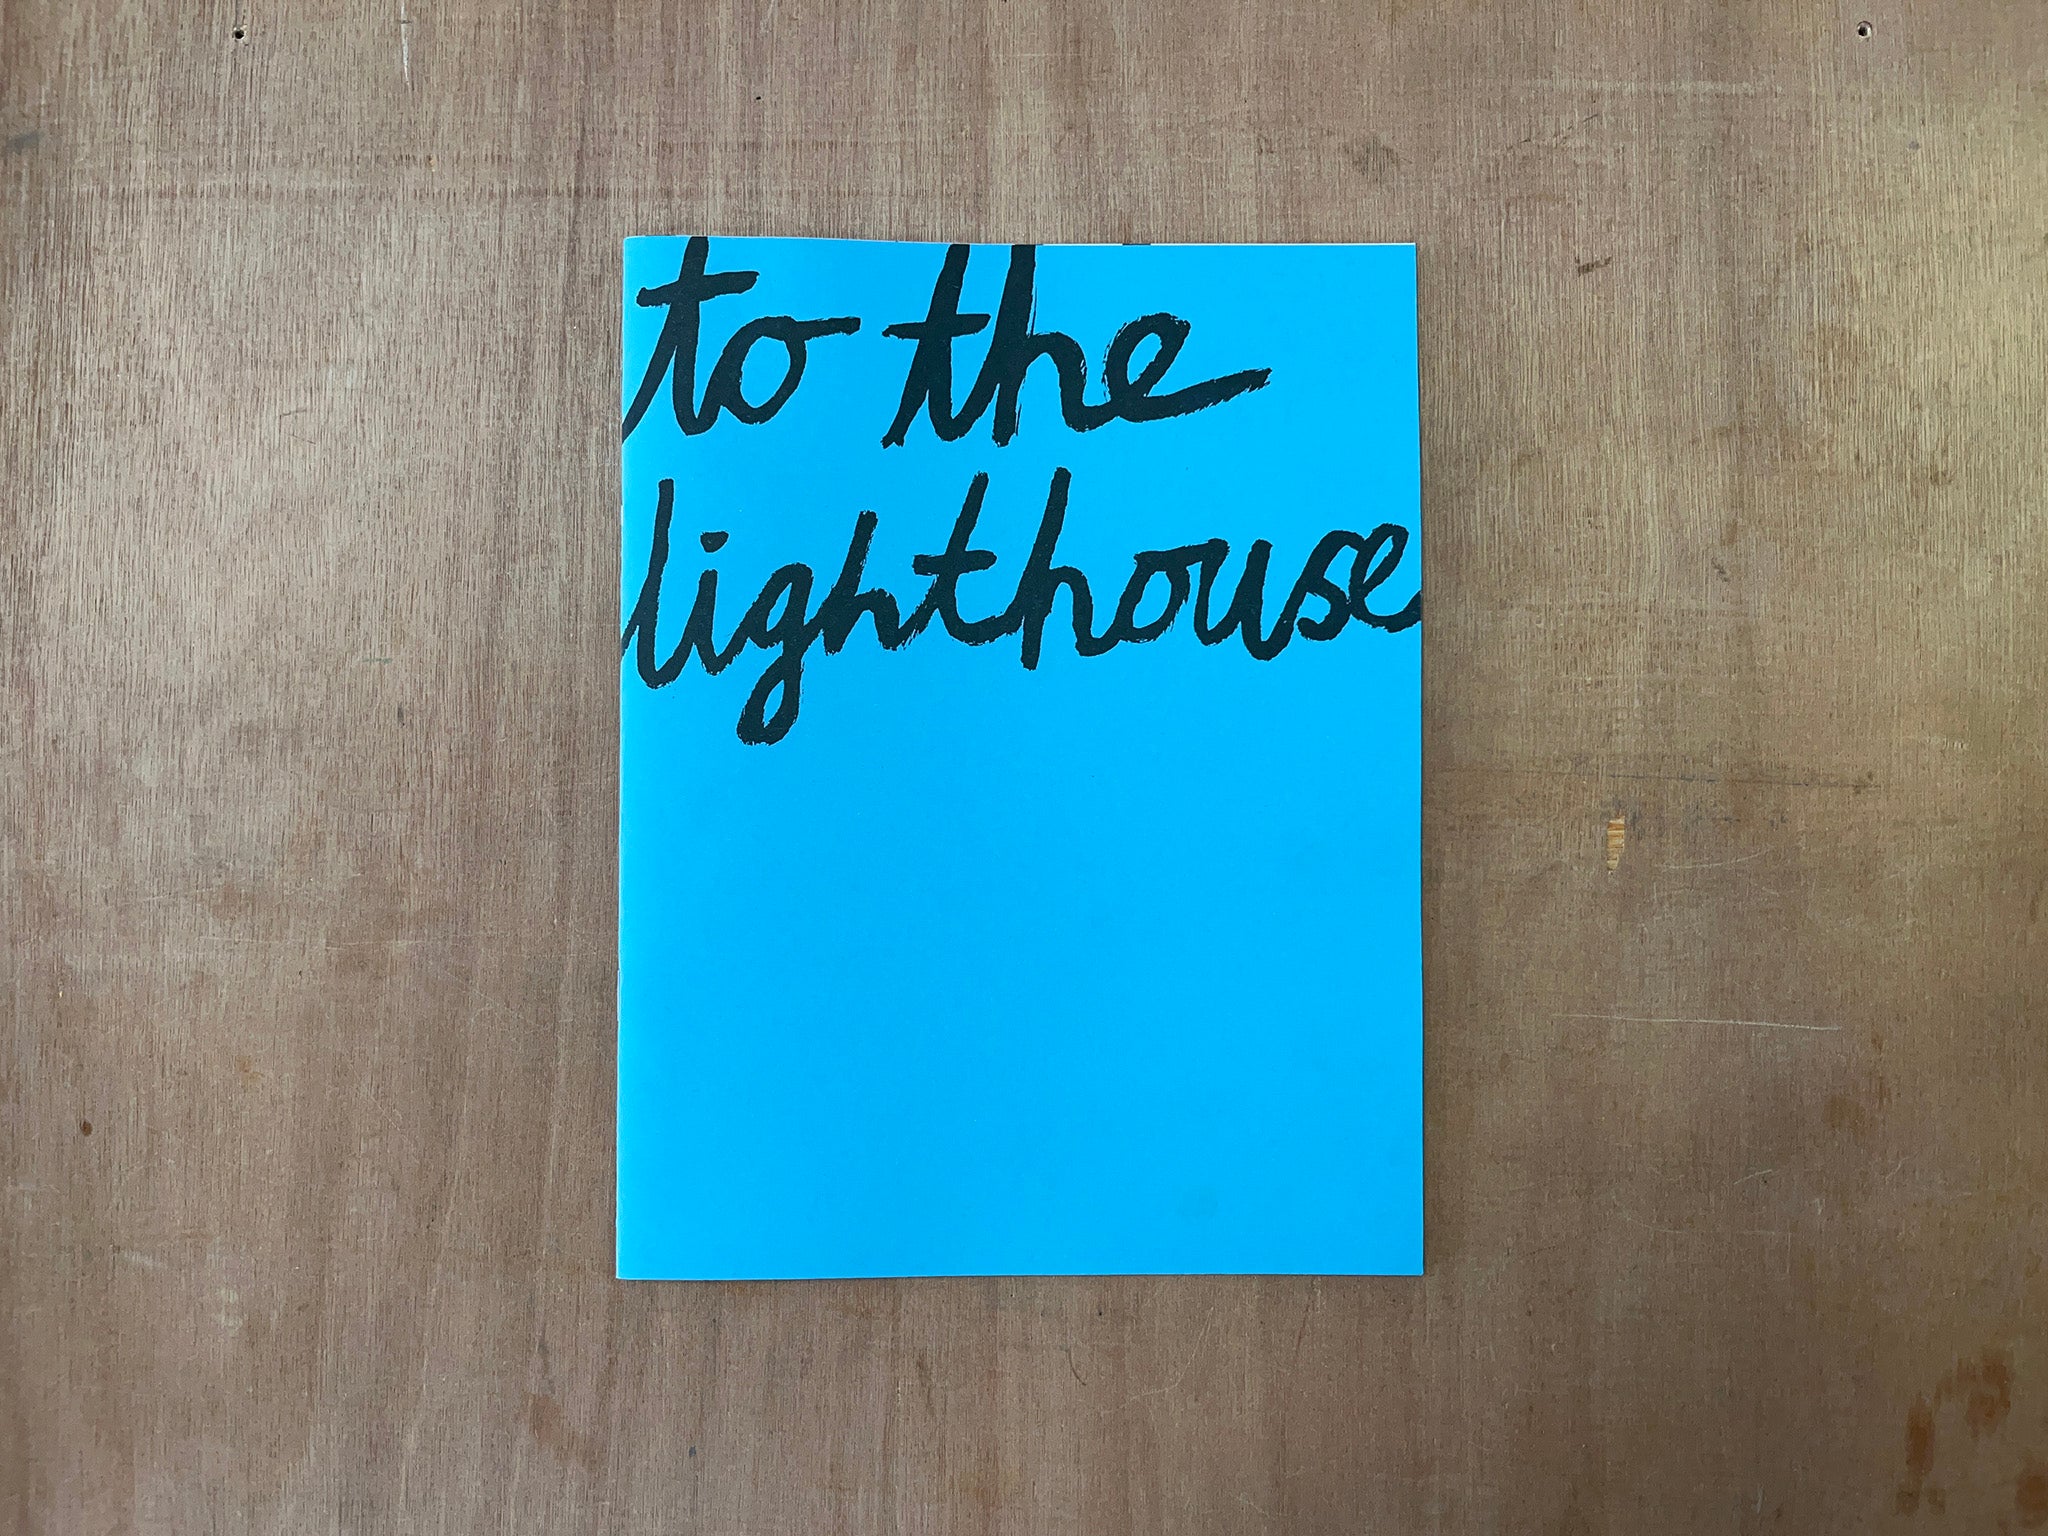 to the
lighthouse